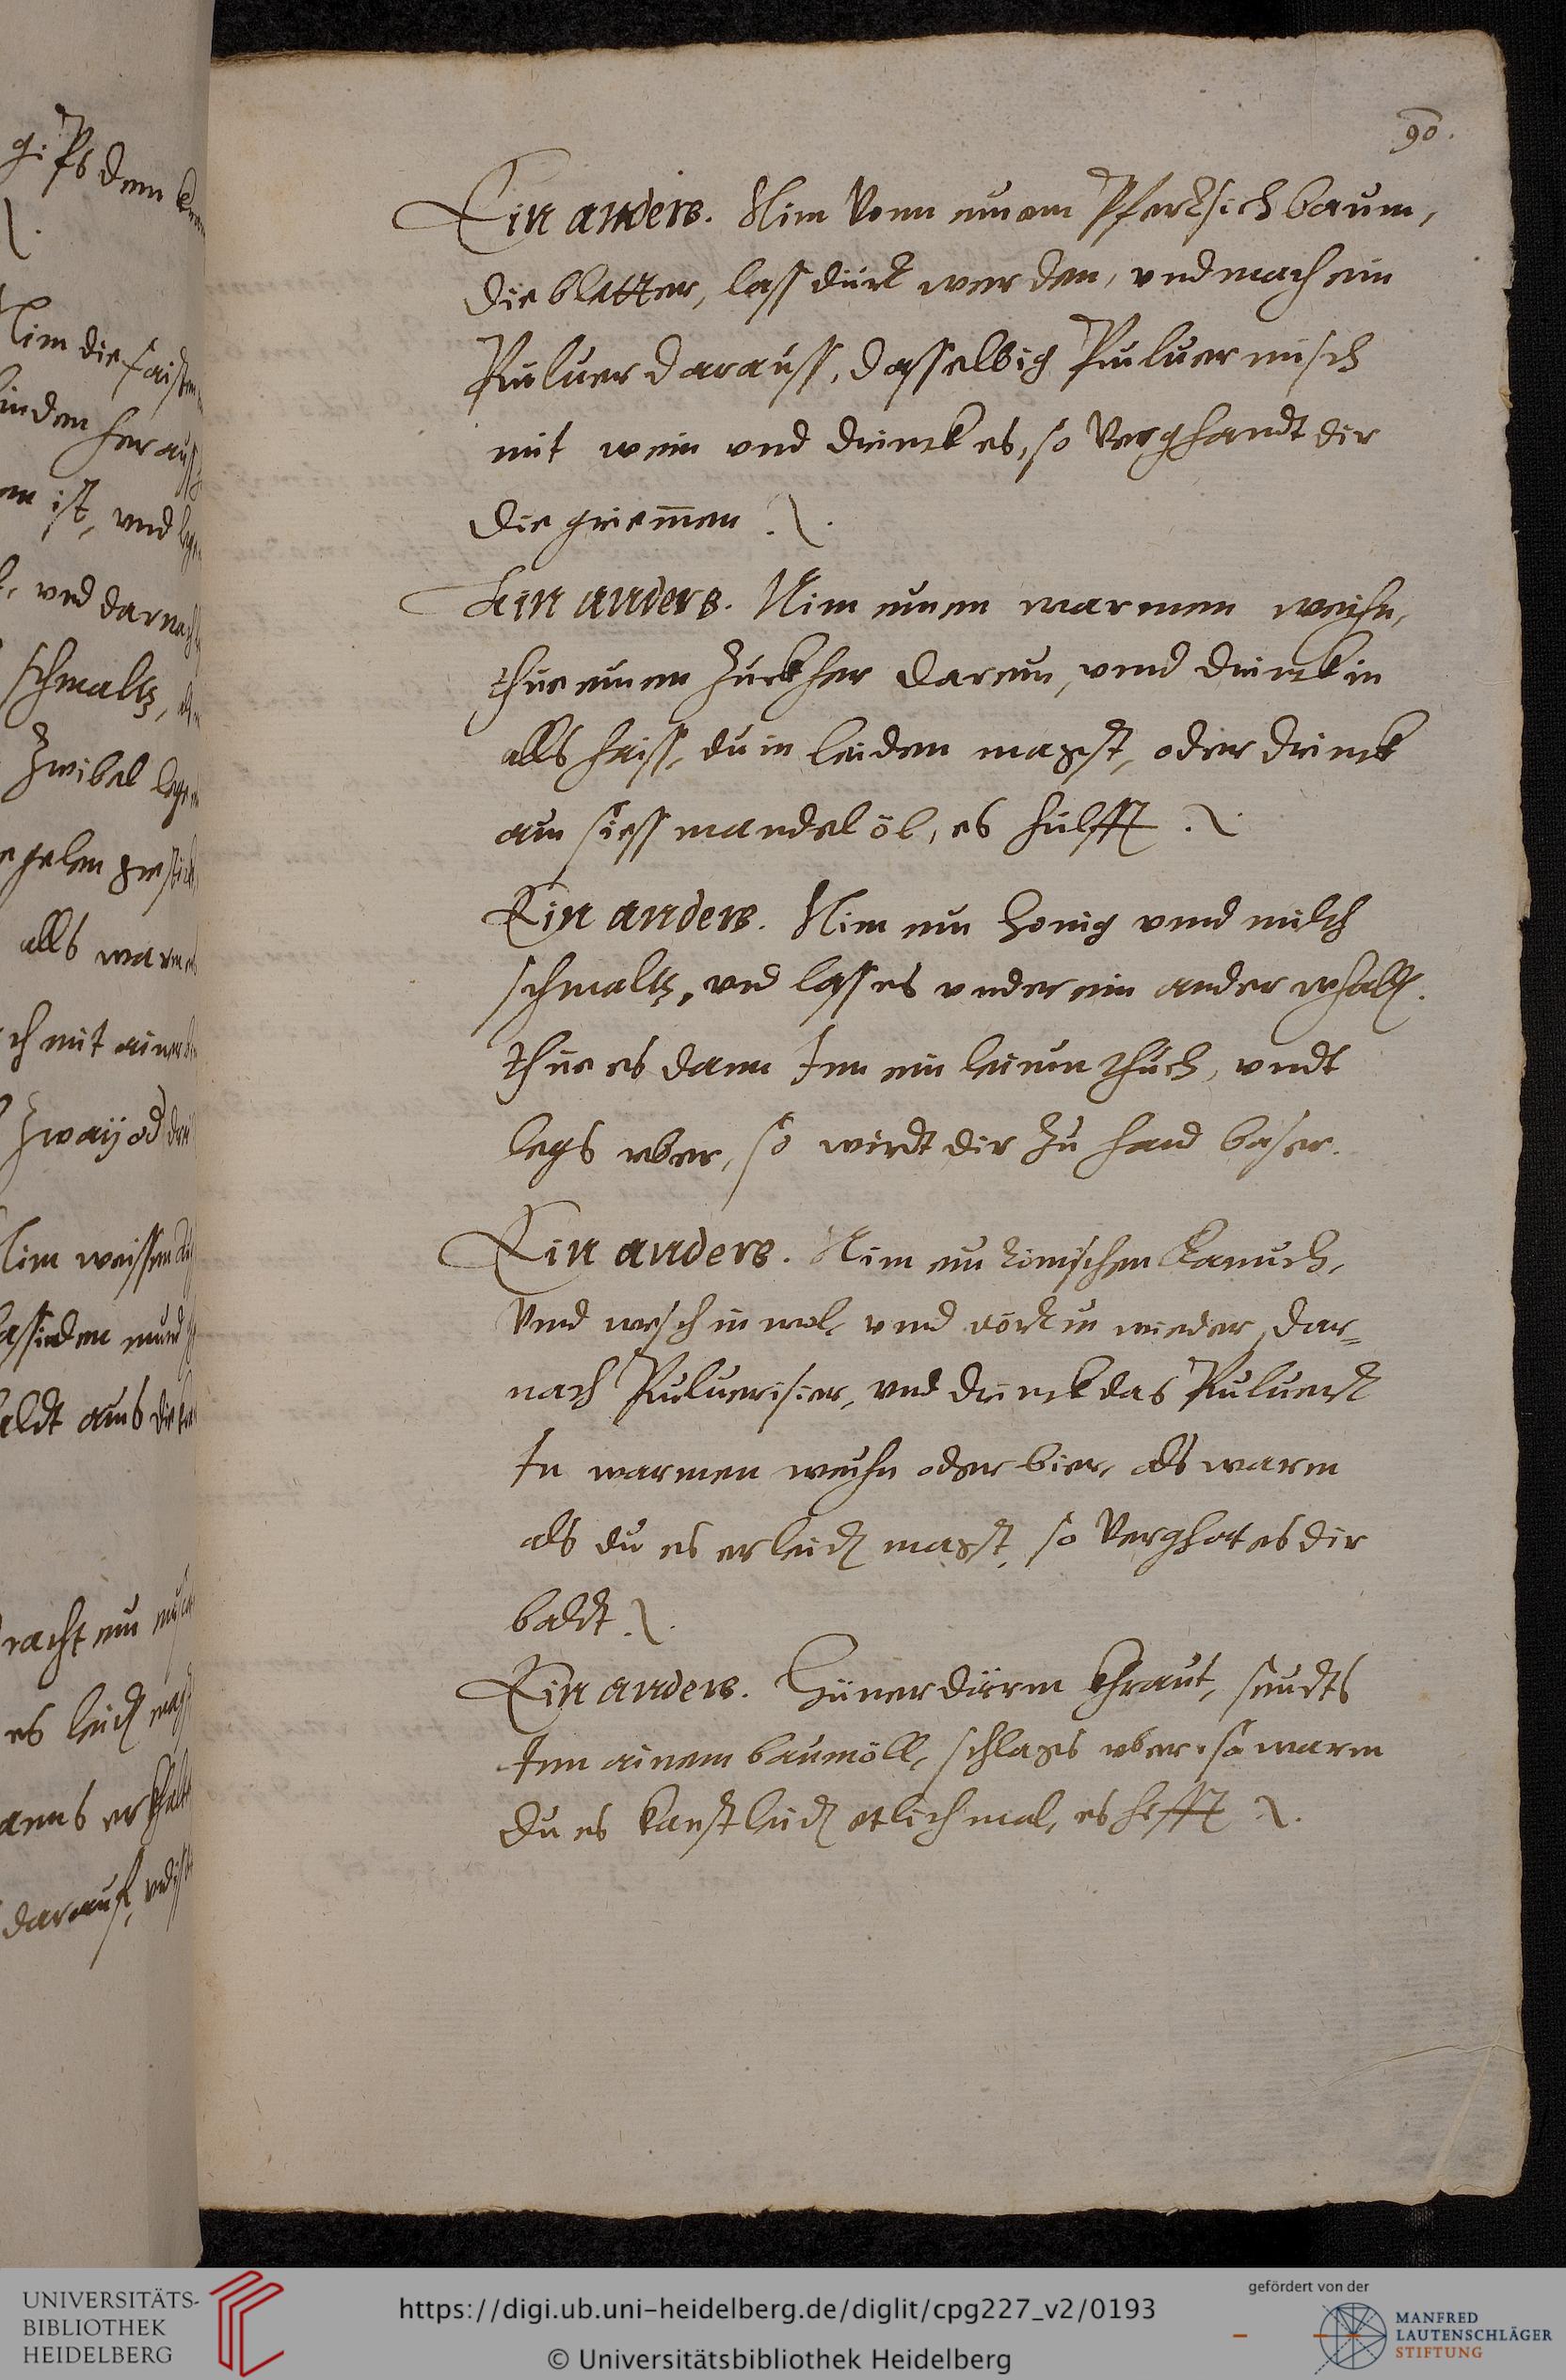 90.
Ein anders. Nim Vonn einem Pfersich baum,
die bletter, lass dürr werden, vnd mach ein
Puluer darauss, dasselbig Puluer misch
mit wein vnd drinck es, so Verghandt dir
die griemen
Ein anders. Nim einen warmen wein,
thue einen Zuckher darein, vnnd drinck in
alls haiss, du in leiden magst, oder drinck
ain siess mandel öl, es hülfft
Ein anders. Nim ein honig vnnd milch
schmaltz, vnd lass es vnder ein ander
thue es dann Inn ein leinin thüch, vndt
legs vber, so wirdt dir zu hand baser.
Ein anders. Nim ein Römischen
Vnnd wesch in wol, vnnd dörr in wieder, dar-
nach Puluerisier, vnd drinck das Puluer
In warmen wein oder bier, als warm
als du es erleiden magst, so Verghat es dir
baldt
Ein anders. Hüner därm khraut, seudts
Inn ainem baumöll, schlags vber, so warm
du es kanst leiden etlich mal, es hilfft
Nim die faisten
heraus
ist, vnd
vnd darnach
schmaltz,
Zwibel
alls warm
mit ainer
Zway od
Nim weissen
darauf,
UNIVERSITÄTS-
BIBLIOTHEK
HEIDELBERG
https://digi.ub.uni-heidelberg.de/diglit/cpg227_v2/0193
© Universitätsbibliothek Heidelberg
gefördert von der
MANFRED
LAUTENSCHLÄGER
STIFTUNG